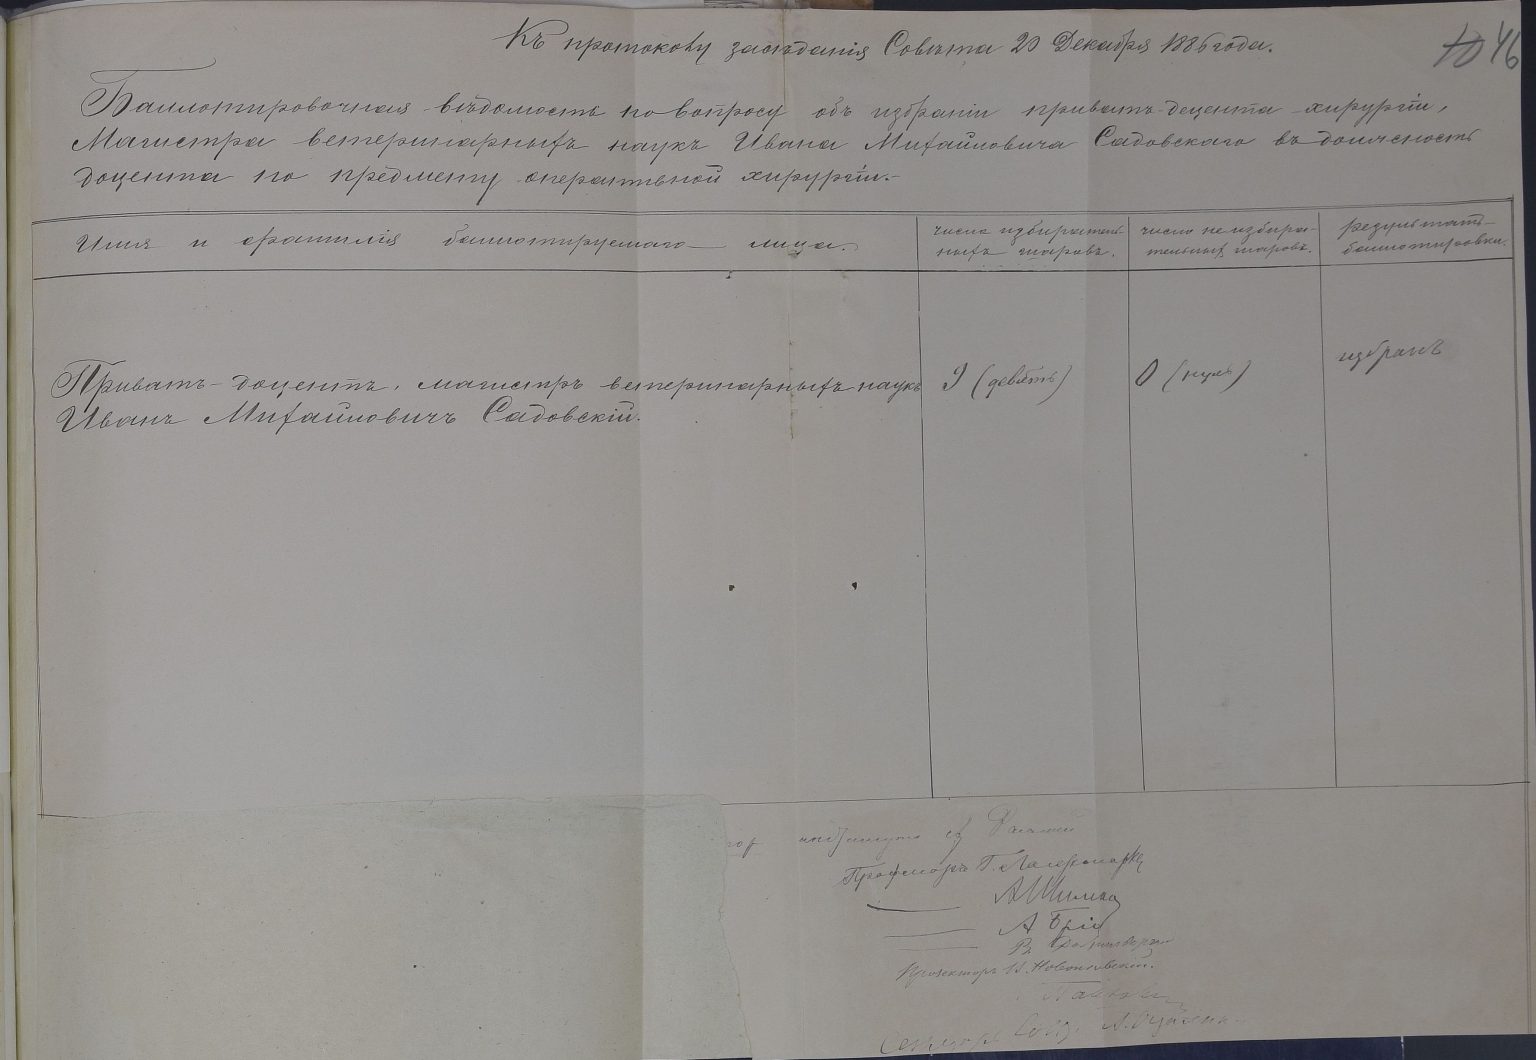 Къ протоколу засѣданія Совѣта 20 Декабря 1886 года.
46
Баллотировочная вѣдомость по вопросу объ избраніи приватъ-доцента хирургіи,
Магистра ветеринарныхъ наукъ Ивана Михайловича Садовскаго въ должность
доцента по предмету оперативной хирургіи.-
Имя и фамилія баллотируемаго лица.
число избиратель-
ныхъ шаровъ.
число не избира-
тельныхъ шаровъ.
результатъ
баллотировки.
Приватъ-доцентъ, магистръ ветеринарныхъ наукъ
Иванъ Михайловичъ Садовскій.
9 (девять)
0 (нуль)
избранъ
Профессоръ Г.
А
А
Прозекторъ
Секретарь